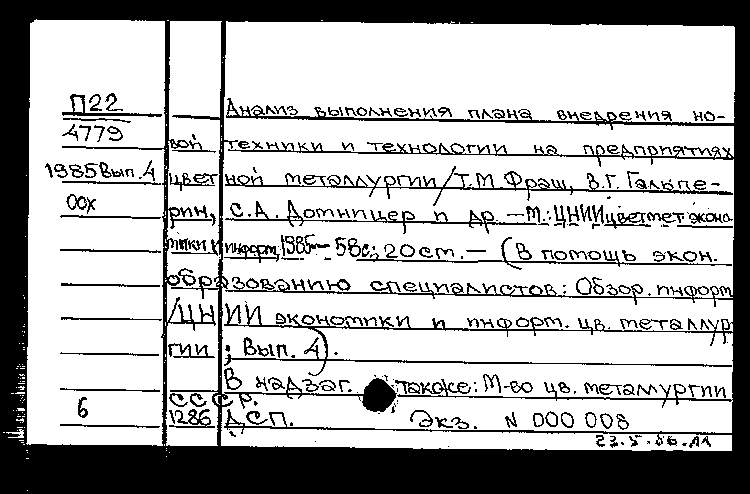 П22 Анализ выполнения плана внедрения но-
4779 вой техники и технологии на предприятиях
1985 Вып. 4 цветной металлургии / Т.М. Фраш, В.Г. Гальпе-
ООХ рин, С.А. Дотницер и др. — М.: ЦНИИцветмет эконо
мики и информ, 1985 — 58с; 20 см. — (В помощь экон.
образованию специалистов: Обзор. информ
/ЦНИИ экономики и информ. цв. металлур
гии ; Вып. 4).
В надзаг. также: М-во цв. металлургии
6 СССР.
1286 ДСП. Экз. N 000 008